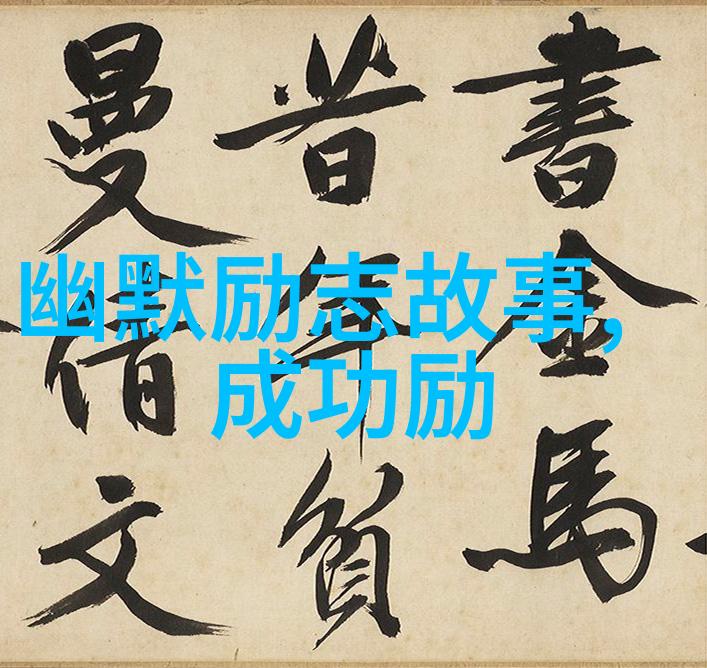 書金馬
昔年負
曼倩文
幽默励志故事,
成功励